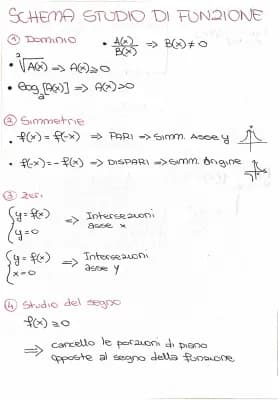 SCHEMA STUDIO DI FUNZIONE
① Dominio • A(x)/B(x) ⇒ B(x) ≠ 0
• ²√A(x) ⇒ A(x) ≥ 0
• log_a [A(x)] ⇒ A(x) > 0
② Simmetrie
• f(x) = f(-x) ⇒ PARI ⇒ Simm. Asse y
• f(-x) = -f(x) ⇒ DISPARI ⇒ Simm. Origine
③ Zeri
{ y = f(x)
{ y = 0 ⇒ Intersezioni asse x
{ y = f(x)
{ x = 0 ⇒ Intersezioni asse y
④ Studio del segno
f(x) ≥ 0
⇒ cancello le porzioni di piano
opposte al segno della funzione